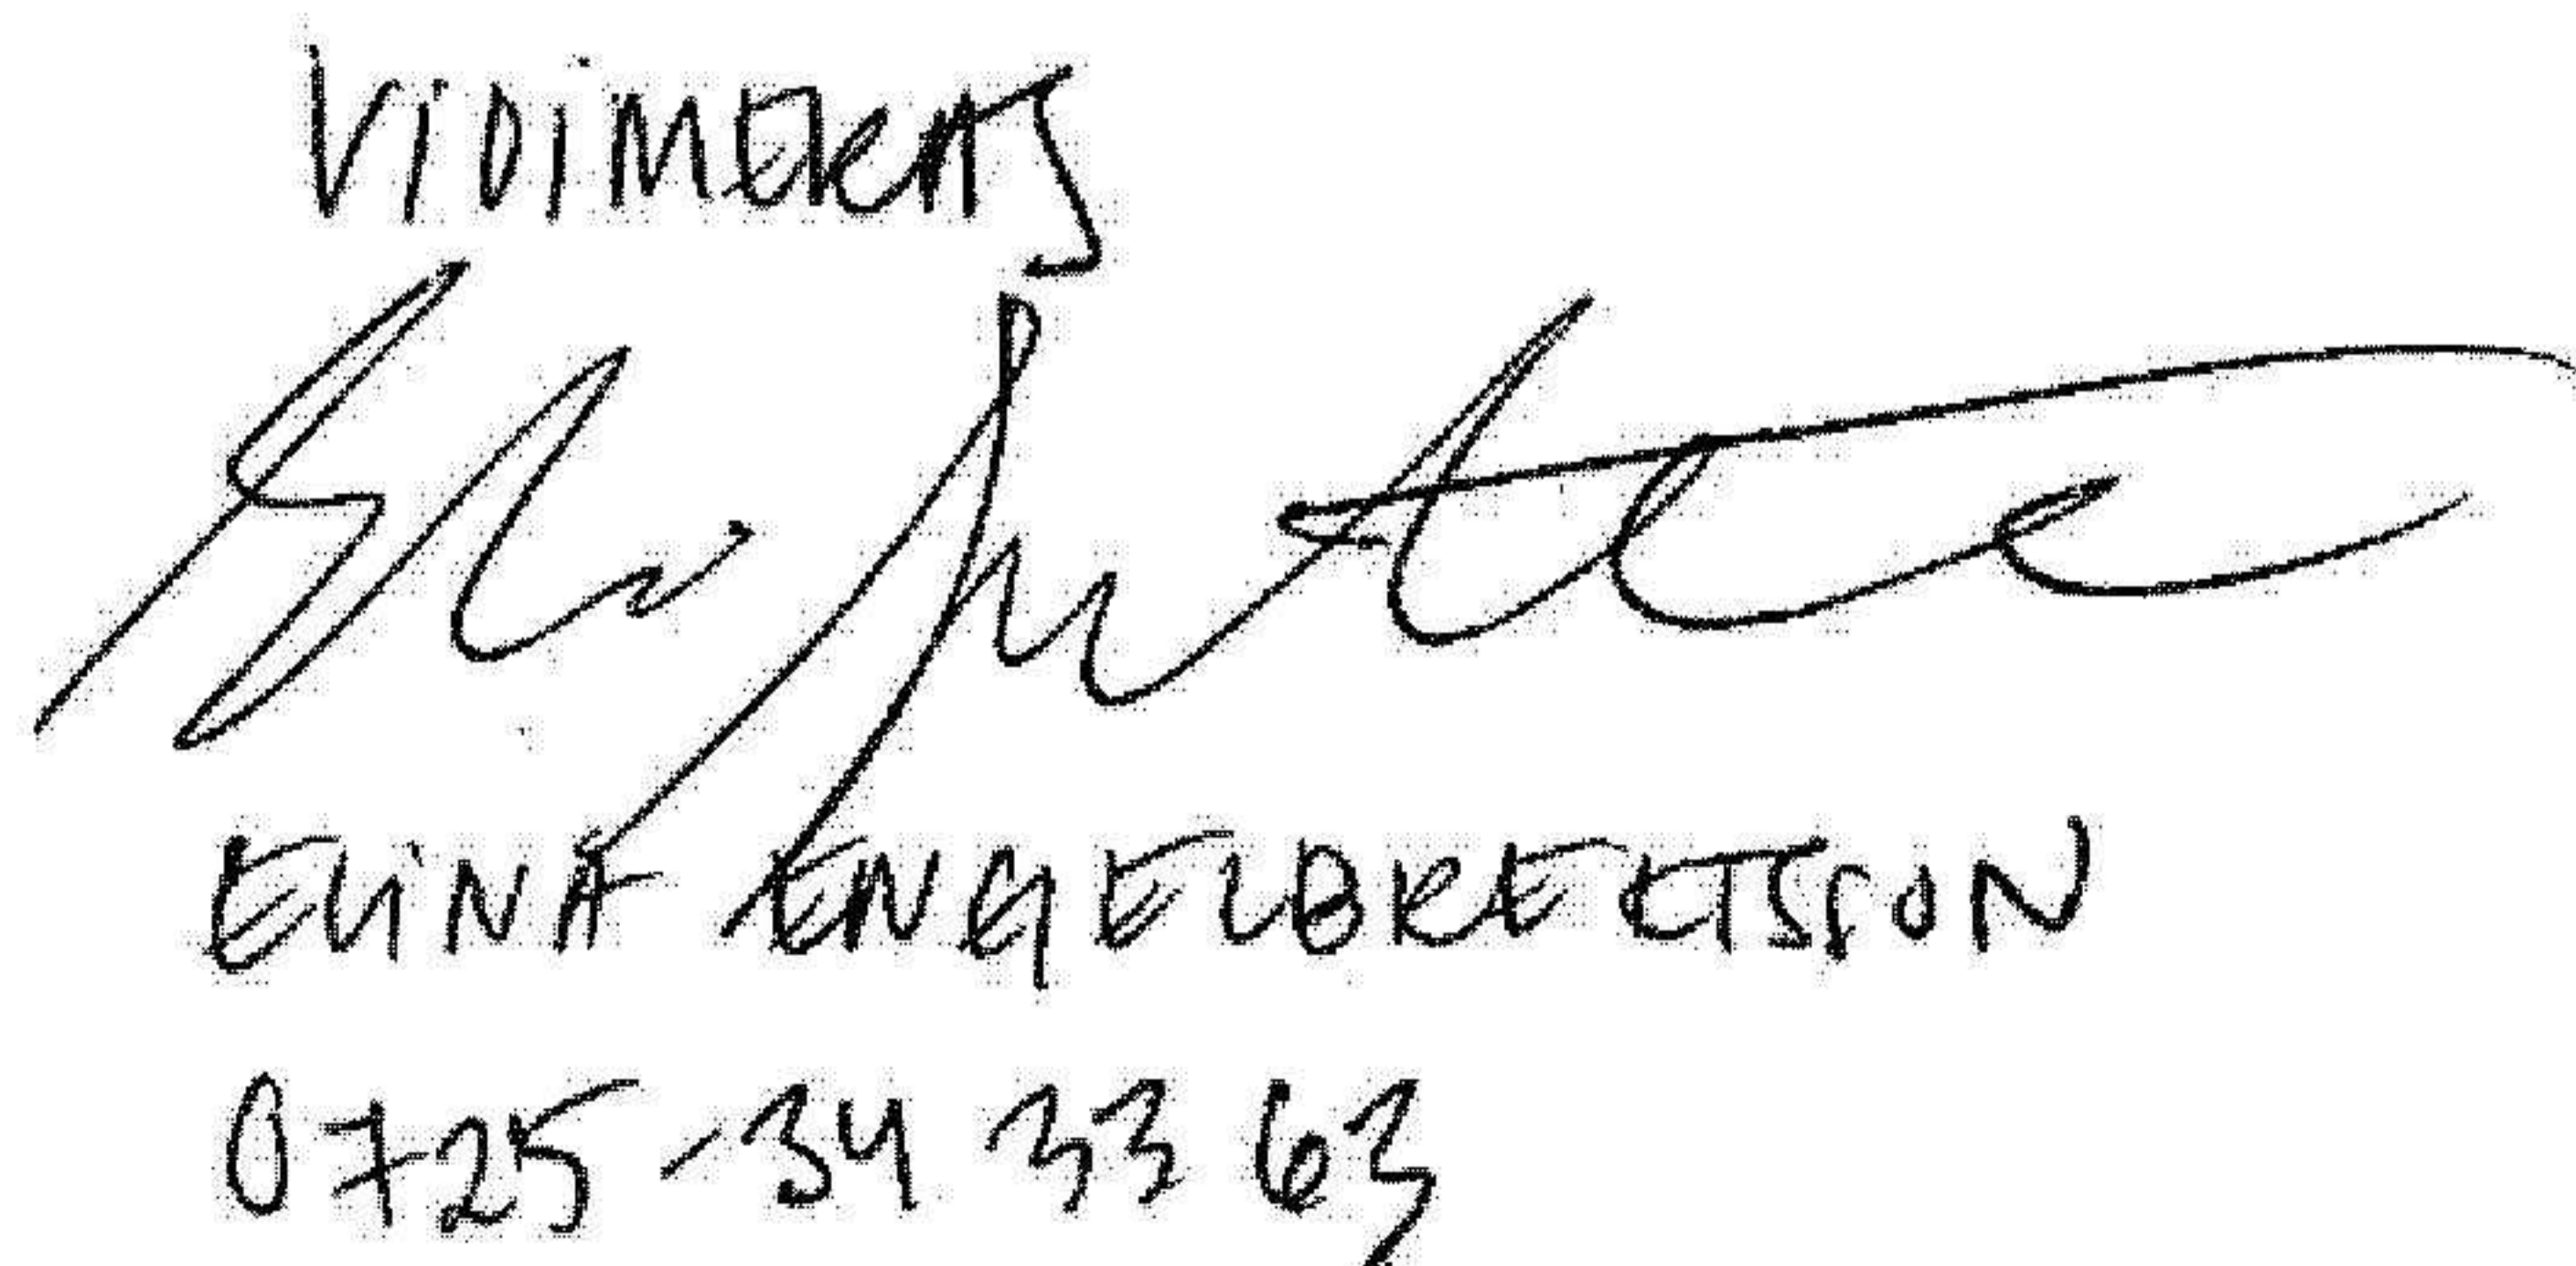 VIDIMERAS
ELINA ENGELBREKTSSON
0725-34 33 63